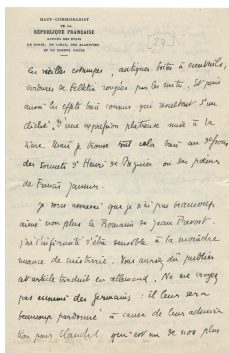 HAUT-COMMISSARIAT
DE LA
RÉPUBLIQUE FRANÇAISE
AUPRÈS DES ÉTATS
DE SYRIE, DU LIBAN, DES ALAOUITES
ET DU DJEBEL DRUZE
les vieilles estampes, antiques boîtes à
verdures de rongées par les mites. Et puis
aussi les effets bien connus qui d'un
cliché, d'une expression mise à la
rime. Mais je trouve tout cela bien au dessous
des sonnets d'Henri de Régnier ou des poèmes
de Francis Jammes.
Je vous avouerai que je n'ai pas beaucoup
aimé non plus le Romains de Jean Prévost.
j'ai l'infirmité d'être sensible à la moindre
nuance de. Vous auriez dû publier
cet article traduit en allemand. Ne me croyez
pas ennemi des Germains : il leur sera
beaucoup pardonné à cause de leur admira
tion pour Claudel qui est un de nos plus